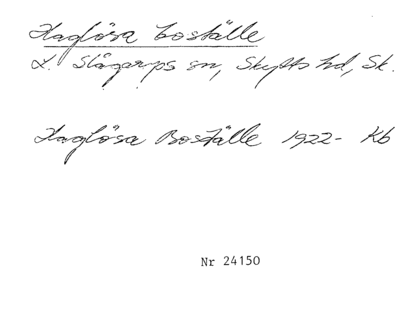 Haglösa boställe
L. Slågarps sn, Skytts hd, Sk.
Haglösa Boställe 1922- Kb
Nr 24150